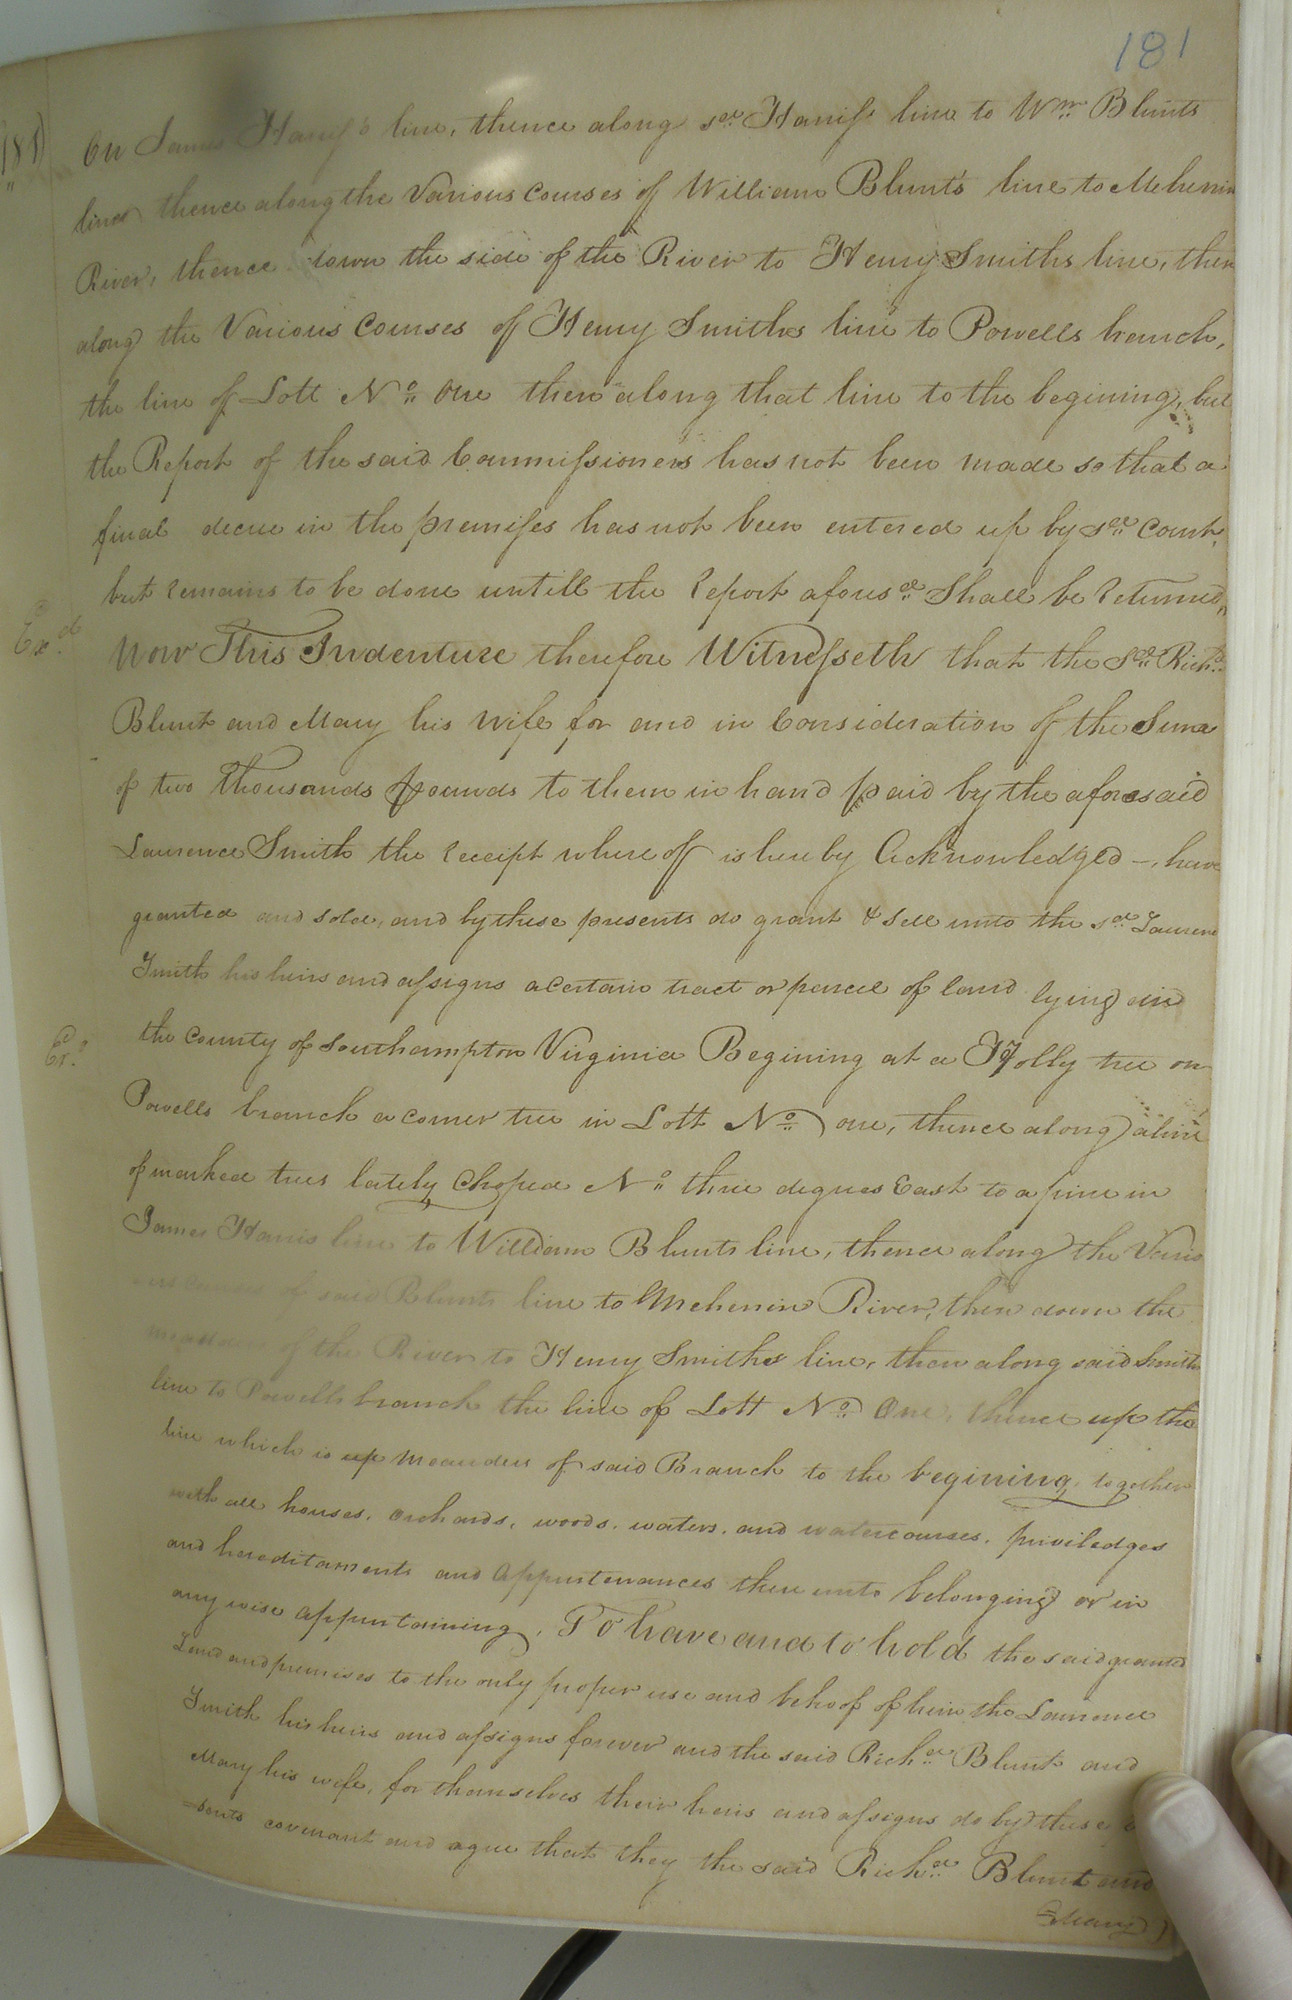 181
181)
On James Harriss line, thence along sd. Harriss line to Wm. Blunts
lines thence along the Various Courses of William Blunt's line to Meherrin
River, thence down the side of the River to Henry Smiths line, then
along the Various Courses of Henry Smiths line to Powells branch,
the line of Lott No. one then along that line to the begining, but
the Report of the said Commissioners has not been made so that a
final decree in the premises has not been entered up by sd. Court,
but remains to be done untill the Report aforesd. Shall be Returned,
Exd.
Now This Indenture therefore Witnesseth that the sd. Richd.
Blunt and Mary his wife for and in Consideration of the Sum
of two thousands pounds to them in hand paid by the aforesaid
Laurence Smith the receipt whereof is hereby Acknowledged –, have
granted and sold, and by these presents do grant & sell unto the sd. Laurence
Smith his heirs and assigns a Certain tract or parcel of land lying in
the County of Southampton Virginia Begining at a Holly tree on
Powells branch a corner tree in Lott No. one, thence along a line
of marked trees lately Choped No. three degrees East to a pine in
James Harris line to William Blunts line, thence along the Vario
us Courses of said Blunts line to Meherrin River, then down the
meanders of the River to Henry Smiths line, then along said Smiths
line to Powells branch the line of Lott No. One, thence up the
line which is up meanders of said Branch to the begining, together
with all houses, orchards, woods, waters, and watercourses, priviledges
and hereditaments and Appurtenances there unto belonging or in
any wise appurtaining. To have and to hold the said granted
Land and premises to the only proper use and behoof of him the Laurence
Smith his heirs and assigns forever and the said Richd. Blunt and
Mary his wife, for themselves their heirs and assigns do by these
=sents covenant and agree that they the said Richd. Blunt and
Mary